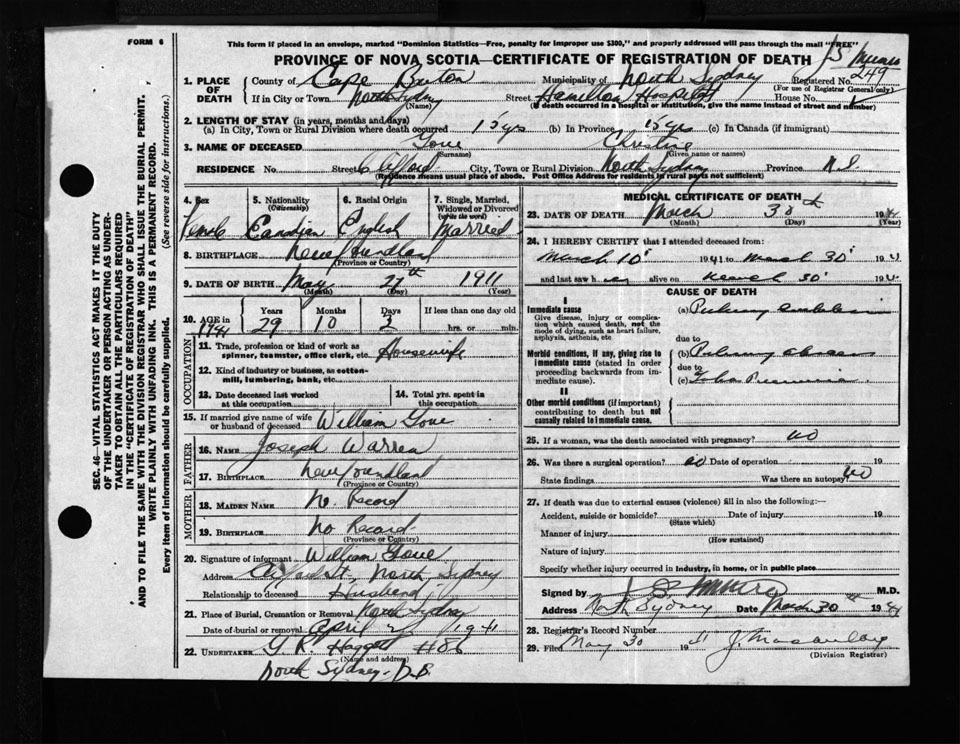 FORM 6
This form if placed in an envelope, marked "Dominion Statistics—Free, penalty for improper use $300," and properly addressed will pass through the mail "FREE"
PROVINCE OF NOVA SCOTIA—CERTIFICATE OF REGISTRATION OF DEATH
JS Munro
1. PLACE OF DEATH
County of Cape Breton Municipality of North Sydney Registered No. 249
(For use of Registrar General only)
If in City or Town North Sydney Street Hamilton Hospital House No.
(Name) (If death occurred in a hospital or institution, give the name instead of street and number)
2. LENGTH OF STAY (in years, months and days)
(a) In City, Town or Rural Division where death occurred 15 yrs (b) In Province 15 yrs (c) In Canada (if immigrant)
3. NAME OF DECEASED Christine
(Surname) (Given name or names)
RESIDENCE No. Street Clifford City, Town or Rural Division North Sydney Province N.S.
(Residence means usual place of abode. Post Office Address for residents in rural parts not sufficient)
4. Sex
5. Nationality (Citizenship)
6. Racial Origin
7. Single, Married, Widowed or Divorced (write the word)
Female Canadian English Married
8. BIRTHPLACE
(Province or Country)
9. DATE OF BIRTH May 27th 1911
(Month) (Day) (Year)
10. AGE in 1941
Years Months Days If less than one day old
29 10 3 hrs. or min.
OCCUPATION
11. Trade, profession or kind of work as spinner, teamster, office clerk, etc. Housewife
12. Kind of industry or business, as cotton-mill, lumbering, bank, etc.
13. Date deceased last worked at this occupation
14. Total yrs. spent in this occupation
15. If married give name of wife or husband of deceased William
FATHER
16. NAME Joseph Warren
17. BIRTHPLACE Newfoundland
(Province or Country)
MOTHER
18. MAIDEN NAME No Record
19. BIRTHPLACE No Record
(Province or Country)
20. Signature of informant William
Address Clifford St, North Sydney
Relationship to deceased Husband
21. Place of Burial, Cremation or Removal North Sydney
Date of burial or removal April 2 1941
22. UNDERTAKER
(Name and address)
North Sydney
MEDICAL CERTIFICATE OF DEATH
23. DATE OF DEATH March 30th 1941
(Month) (Day) (Year)
24. I HEREBY CERTIFY that I attended deceased from:
March 10 1941 to March 30 194
and last saw h alive on March 30 194
CAUSE OF DEATH
I
Immediate cause
Give disease, injury or complication which caused death, not the mode of dying, such as heart failure, asphyxia, asthenia, etc
(a)
due to
Morbid conditions, if any, giving rise to immediate cause (stated in order proceeding backwards from immediate cause).
(b)
due to
(c)
II
Other morbid conditions (if important) contributing to death but not causally related to immediate cause.
25. If a woman, was the death associated with pregnancy? no
26. Was there a surgical operation? no Date of operation 19
State findings Was there an autopsy? no
27. If death was due to external causes (violence) fill in also the following:—
Accident, suicide or homicide? Date of injury 19
(State which)
Manner of injury
(How sustained)
Nature of injury
Specify whether injury occurred in industry, in home, or in public place
Signed by J S Munro M.D.
Address North Sydney Date March 30 1941
28. Registrar's Record Number
29. Filed May 30 1941
(Division Registrar)
SEC. 46—VITAL STATISTICS ACT MAKES IT THE DUTY
OF THE UNDERTAKER OR PERSON ACTING AS UNDER-
TAKER TO OBTAIN ALL THE PARTICULARS REQUIRED
IN THE "CERTIFICATE OF REGISTRATION OF DEATH"
AND TO FILE THE SAME WITH THE DIVISION REGISTRAR WHO SHALL ISSUE THE BURIAL PERMIT.
WRITE PLAINLY WITH UNFADING INK. THIS IS A PERMANENT RECORD.
Every item of information should be carefully supplied. (See reverse side for instructions.)